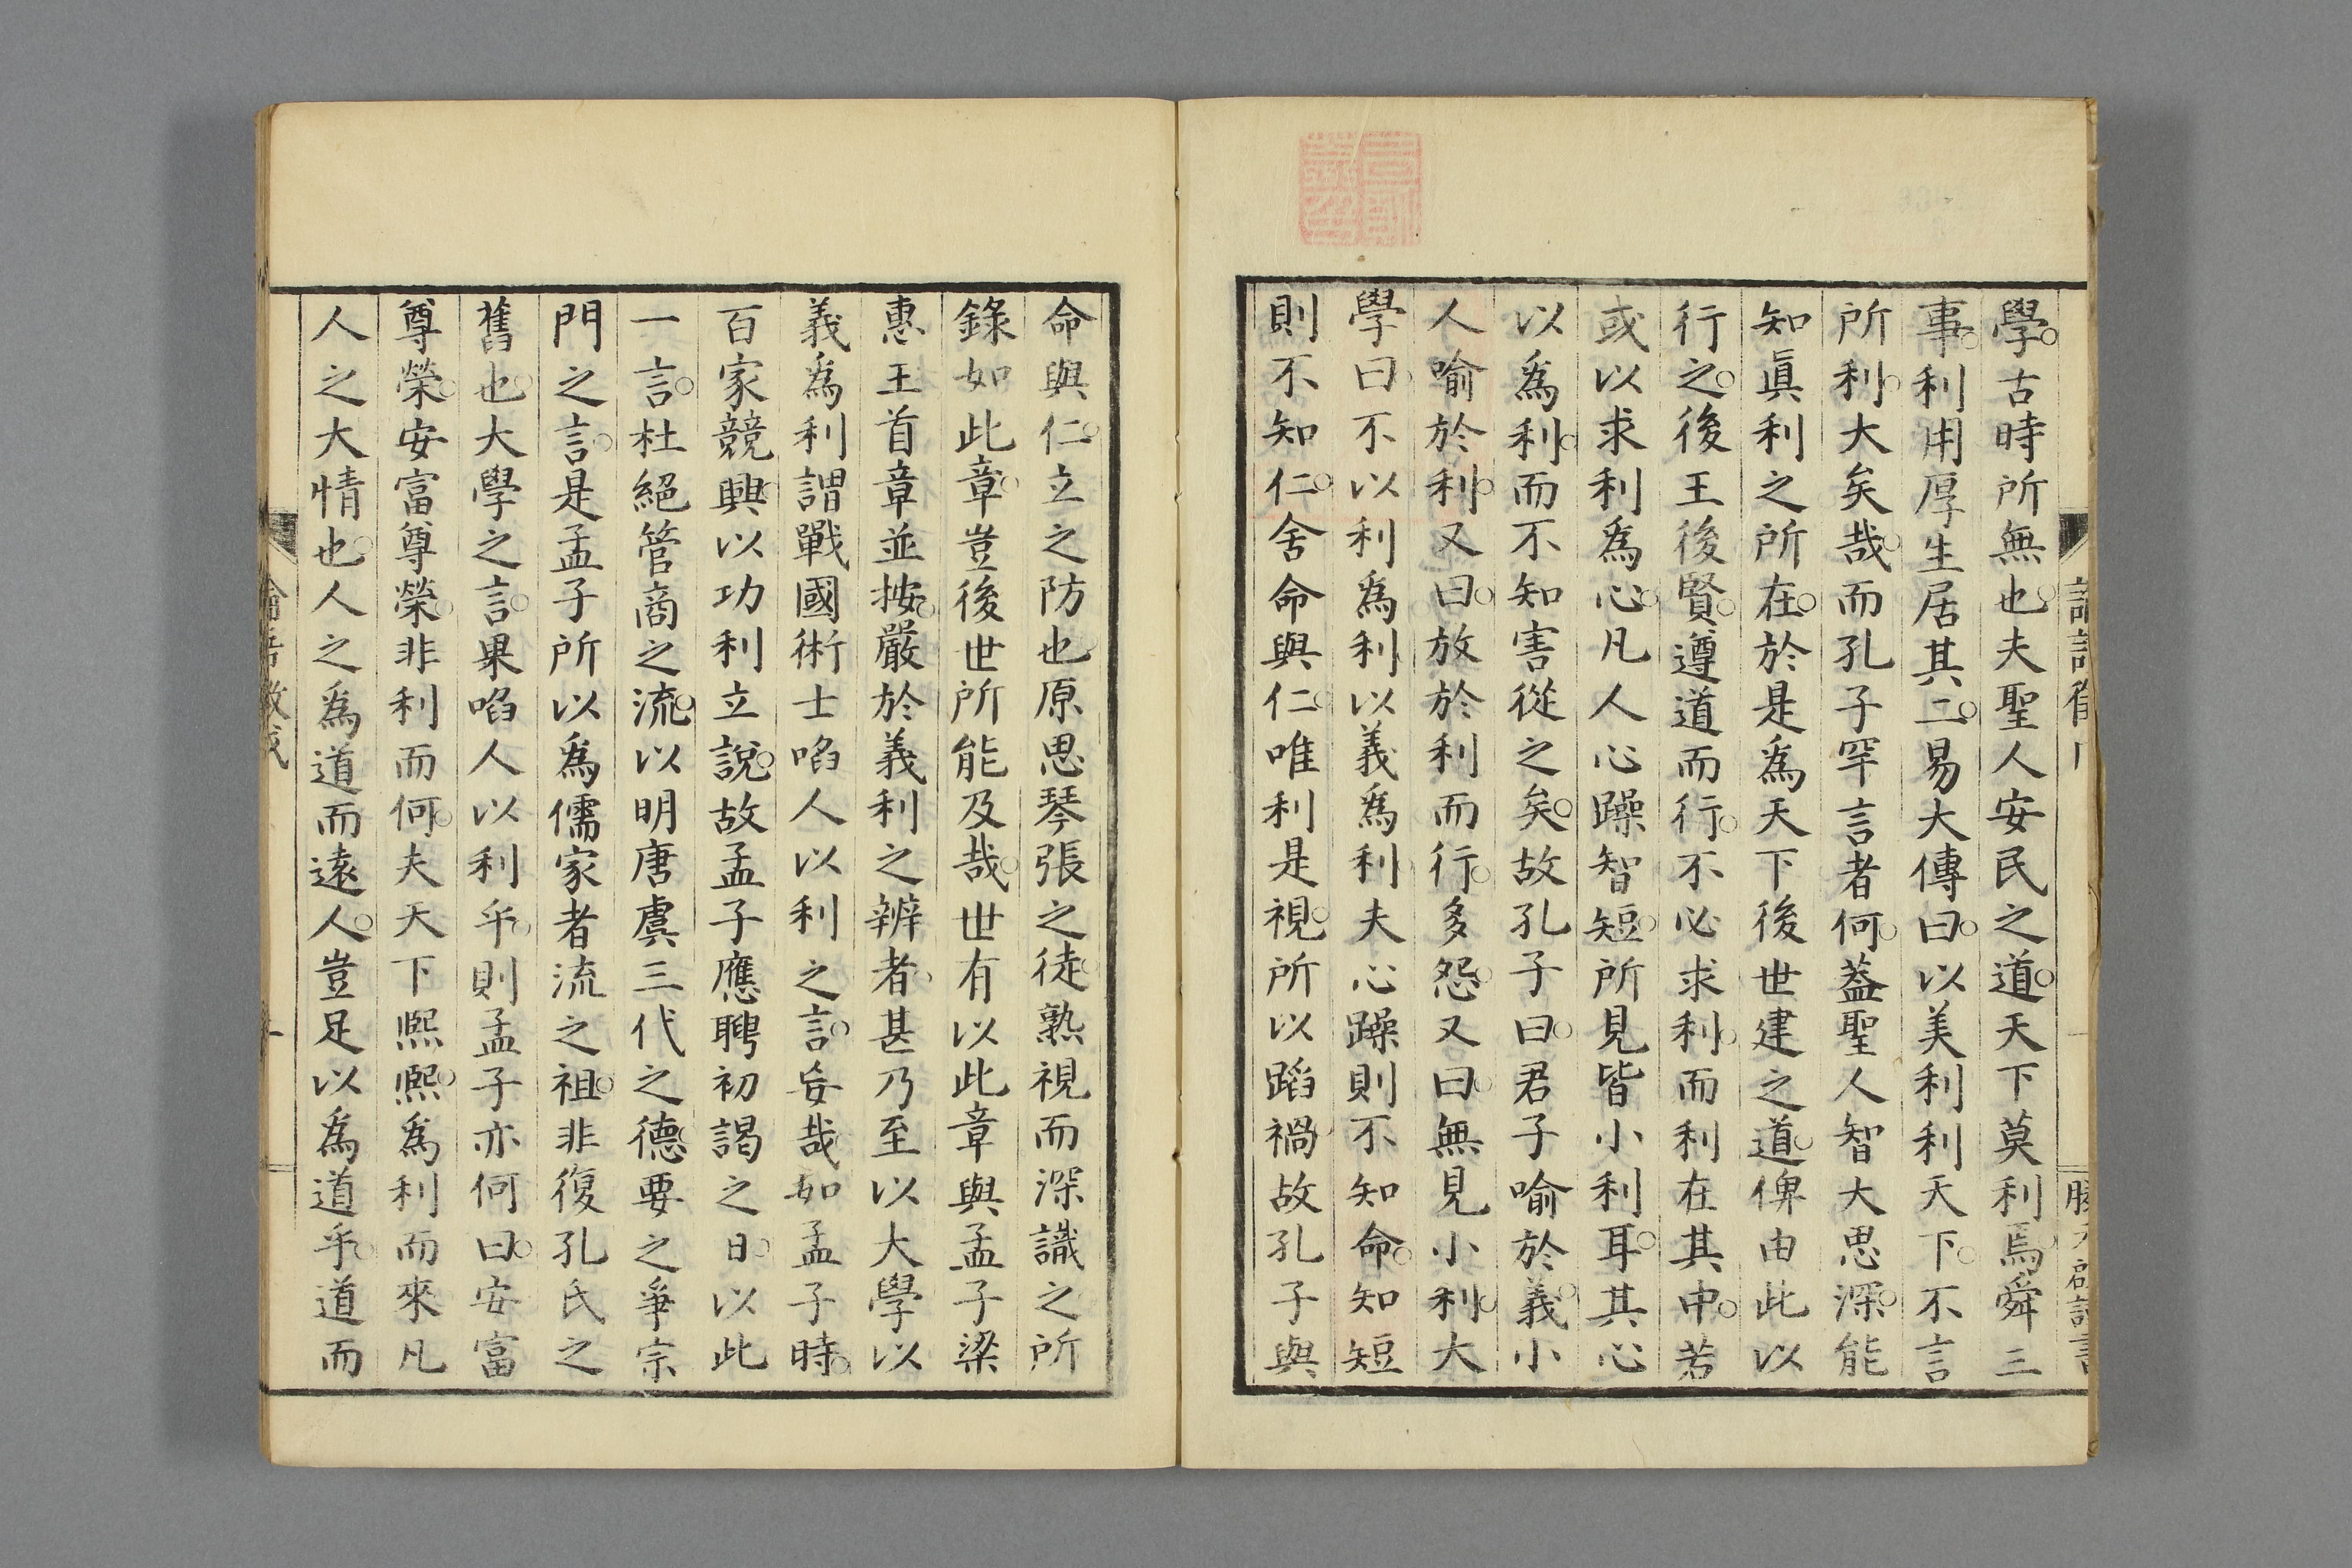 學古時所無也夫聖人安民之道天下莫利焉舜三
事利用厚生居其二易大傳曰以美利利天下不言
所利大矣哉而孔子罕言者何蓋聖人智大思深能
知眞利之所在於是爲天下後世建之道俾由此以
行之後王後賢遵道而行不必求利而利在其中若
或以求利爲心凡人心躁智短所見皆小利耳其心
以爲利而不知害從之矣故孔子曰君子喻於義小
人喻於利又曰放於利而行多怨又曰無見小利大
學曰不以利爲利以義爲利夫心躁則不知命知短
則不知仁舍命與仁唯利是視所以蹈禍故孔子與
命與仁立之防也原思琴張之徒熟視而深識之所
錄如此章豈後世所能及哉世有以此章與孟子梁
惠王首章並按嚴於義利之辨者甚乃至以大學以
義爲利謂戰國術士啗人以利之言妄哉如孟子時
百家競興以功利立說故孟子應聘初謁之日以此
一言杜絕管商之流以明唐虞三代之德要之爭宗
門之言是孟子所以爲儒家者流之祖非復孔氏之
舊也大學之言果啗人以利乎則孟子亦何曰安富
尊榮安富尊榮非利而何夫天下熙熙爲利而來凡
人之大情也人之爲道而遠人豈足以爲道乎道而